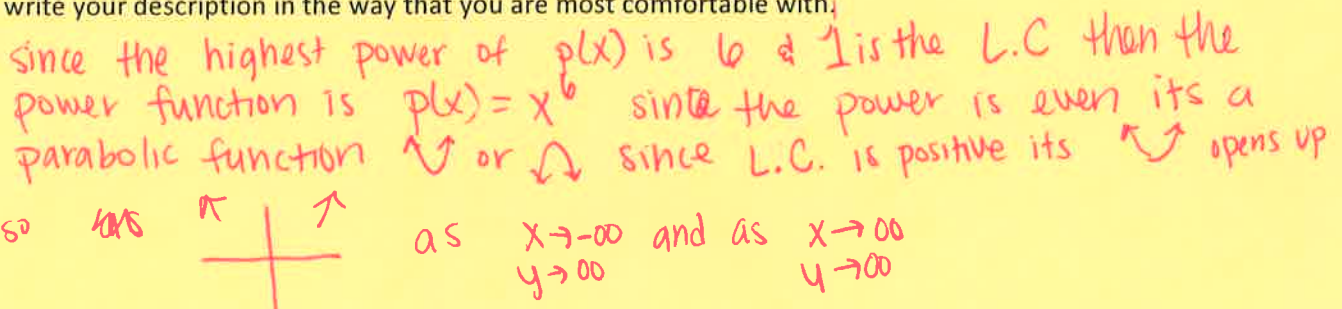 write your description in the way that you are most comfortable with.
since the highest power of p(x) is 6 & 1 is the L.C then the
power function is p(x) = x⁶ since the power is even its a
parabolic function or since L.C. is positive its opens up
so as x→-∞ and as x→∞
y→∞ y→∞